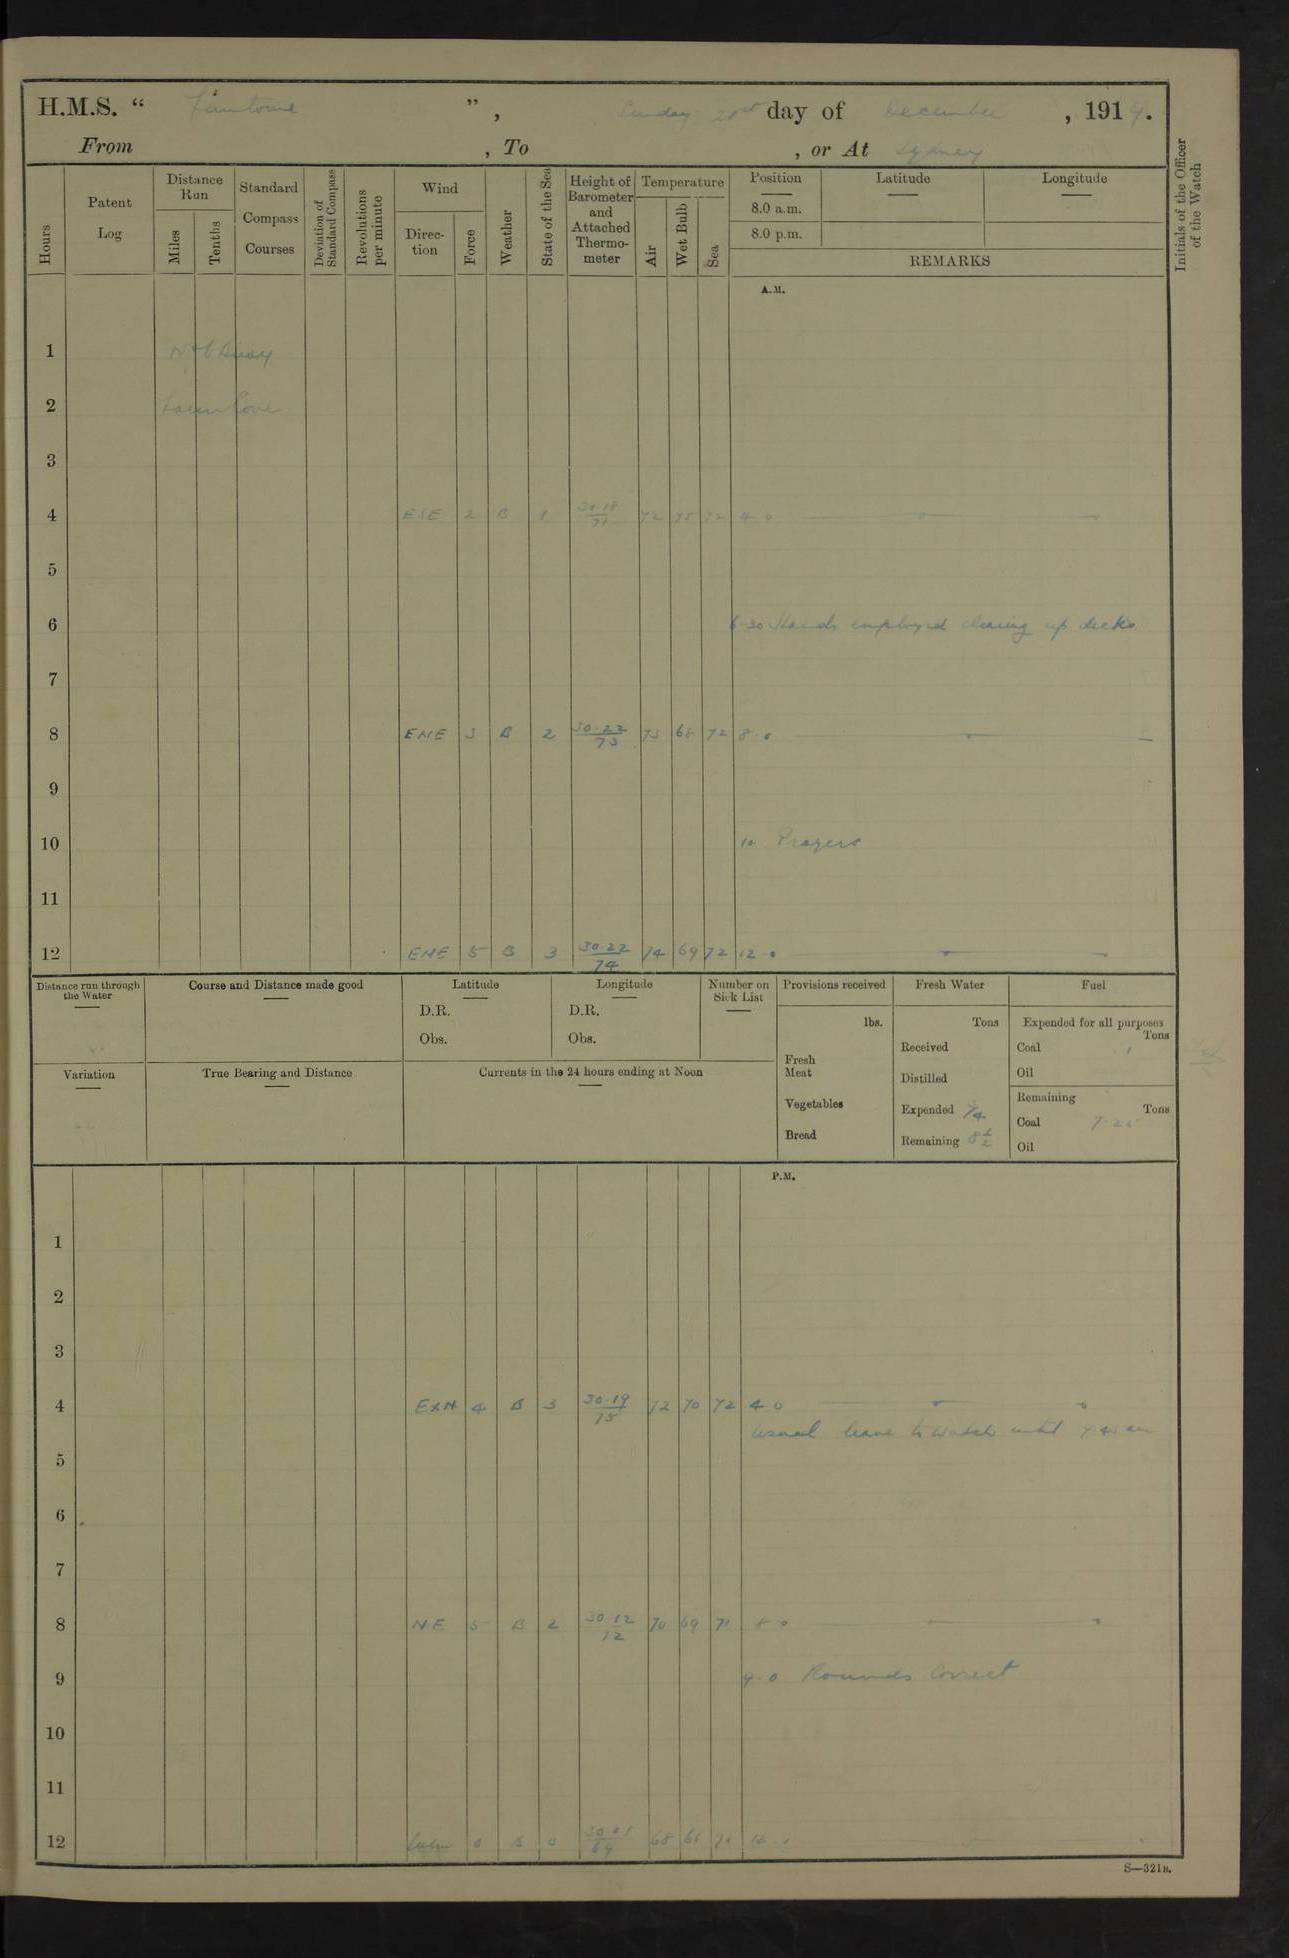 H.M.S. “ ”, Sunday day of December, 1914.
From , To , or At Sydney
Hours
Patent Log
Distance Run
Miles
Tenths
Standard Compass Courses
Deviation of Standard Compass
Revolutions per minute
Wind
Direc-tion
Force
Weather
State of the Sea
Height of Barometer and Attached Thermo-meter
Temperature
Air
Wet Bulb
Sea
Position
8.0 a.m.
8.0 p.m.
Latitude
Longitude
REMARKS
Initials of the Officer of the Watch
A.M.
1
2
3
4 ESE 2 B 1 30·18/71 72 72 4 0
5
6 6-30 Hands employed clearing up decks
7
8 ENE 3 B 2 30·22/73 73 68 72 8 0
9
10 10 Prayers
11
12 ENE 5 B 3 30·22/74 74 69 72 12 0
Distance run through the Water
Course and Distance made good
Latitude
D.R.
Obs.
Longitude
D.R.
Obs.
Number on Sick List
Provisions received
lbs.
Fresh Meat
Vegetables
Bread
Fresh Water
Tons
Received
Distilled
Expended 1/4
Remaining 8 1/2
Fuel
Expended for all purposes
Tons
Coal
Oil
Remaining
Tons
Coal
Oil
Variation
True Bearing and Distance
Currents in the 24 hours ending at Noon
P.M.
1
2
3
4 ExN 4 B 3 30·19/75 72 70 72 4 0
Usual leave to watch until
5
6
7
8 NE 5 B 2 30·12/72 70 69 71 8 0
9 9·0 Rounds Correct
10
11
12 Calm 0 B 0 68
S—321B.